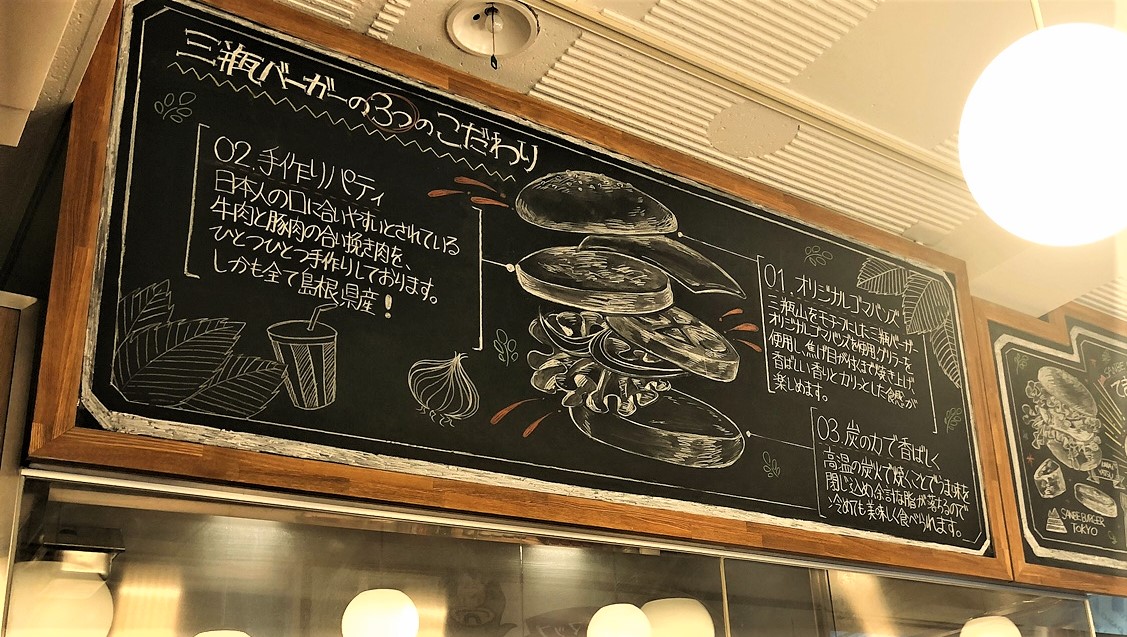 三瓶バーガーの3つのこだわり
02.手作りパティ
日本人の口に合いやすいとされている
牛肉と豚肉の合い挽き肉を、
ひとつひとつ手作りしております。
しかも全て島根県産!
01.オリジナルゴマバンズ
三瓶山をモチーフにした三瓶バーガー
オリジナルゴマバンズを使用。グリラーを
使用し焦げ目が付くまで焼き上げ
香ばしい香りとカリッとした食感が
楽しめます。
03.炭の力で香ばしく
高温の炭火で焼くことでうま味を
閉じ込め余計な脂が落ちるので
冷めても美味しく食べられます。
SANBE BURGER
TOKYO